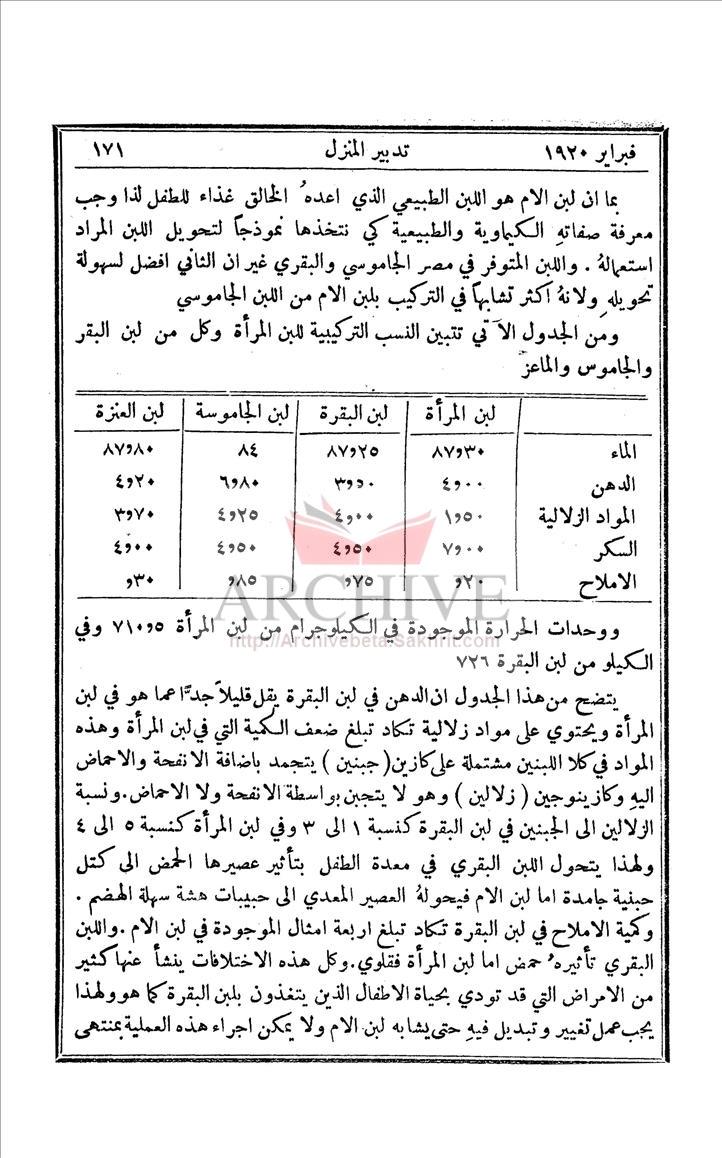 فبراير ١٩٢٠ تدبير المنزل ١٧١
بما ان لبن الام هو اللبن الطبيعي الذي اعدهُ الخالق غذاء للطفل لذا وجب
معرفة صفاتهِ الكيماوية والطبيعية كي نتخذها نموذجاً لتحويل اللبن المراد
استعمالهُ . واللبن المتوفر في مصر الجاموسي والبقري غير ان الثاني افضل لسهولة
تحويلهِ ولانهُ اكثر تشابهاً في التركيب بلبن الام من اللبن الجاموسي
ومن الجدول الآتي تتبين النسب التركيبية للبن المرأة وكل من لبن البقر
والجاموس والماعز
لبن المرأة لبن البقرة لبن الجاموسة لبن العنزة
الماء ٨٧٫٣٠ ٨٧٫٢٥ ٨٤ ٨٧٫٨٠
الدهن ٤٫٠٠ ٣٫٥٠ ٦٫٨٠ ٤٫٢٠
المواد الزلالية ١٫٥٠ ٤٫٠٠ ٤٫٢٥ ٣٫٧٠
السكر ٧٫٠٠ ٤٫٥٠ ٤٫٥٠ ٤٫٠٠
الاملاح ٫٢٠ ٫٧٥ ٫٨٥ ٫٣٠
ARCHIVE
http://Archivebeta.Sakhrit.com
ووحدات الحرارة الموجودة في الكيلوجرام من لبن المرأة ٧١٠٫٥ وفي
الكيلو من لبن البقرة ٧٢٦
يتضح من هذا الجدول ان الدهن في لبن البقرة يقل قليلاً جدًّا عما هو في لبن
المرأة ويحتوي على مواد زلالية تكاد تبلغ ضعف الكمية التي في لبن المرأة وهذه
المواد في كلا اللبنين مشتملة على كازين ( جبنين ) يتجمد باضافة الانفحة والاحماض
اليهِ وكازينوجين ( زلالين ) وهو لا يتجبن بواسطة الانفحة ولا الاحماض . ونسبة
الزلالين الى الجبنين في لبن البقرة كنسبة ١ الى ٣ وفي لبن المرأة كنسبة ٥ الى ٤
ولهذا يتحول اللبن البقري في معدة الطفل بتأثير عصيرها الحمض الى كتل
جبنية جامدة اما لبن الام فيحولهُ العصير المعدي الى حبيبات هشة سهلة الهضم .
وكمية الاملاح في لبن البقرة تكاد تبلغ اربعة امثال الموجودة في لبن الام . واللبن
البقري تأثيرهُ حمض اما لبن المرأة فقلوي . وكل هذه الاختلافات ينشأ عنها كثير
من الامراض التي قد تودي بحياة الاطفال الذين يتغذون بلبن البقرة كما هو ولهذا
يجب عمل تغيير وتبديل فيهِ حتى يشابه لبن الام ولا يمكن اجراء هذه العملية بمنتهى